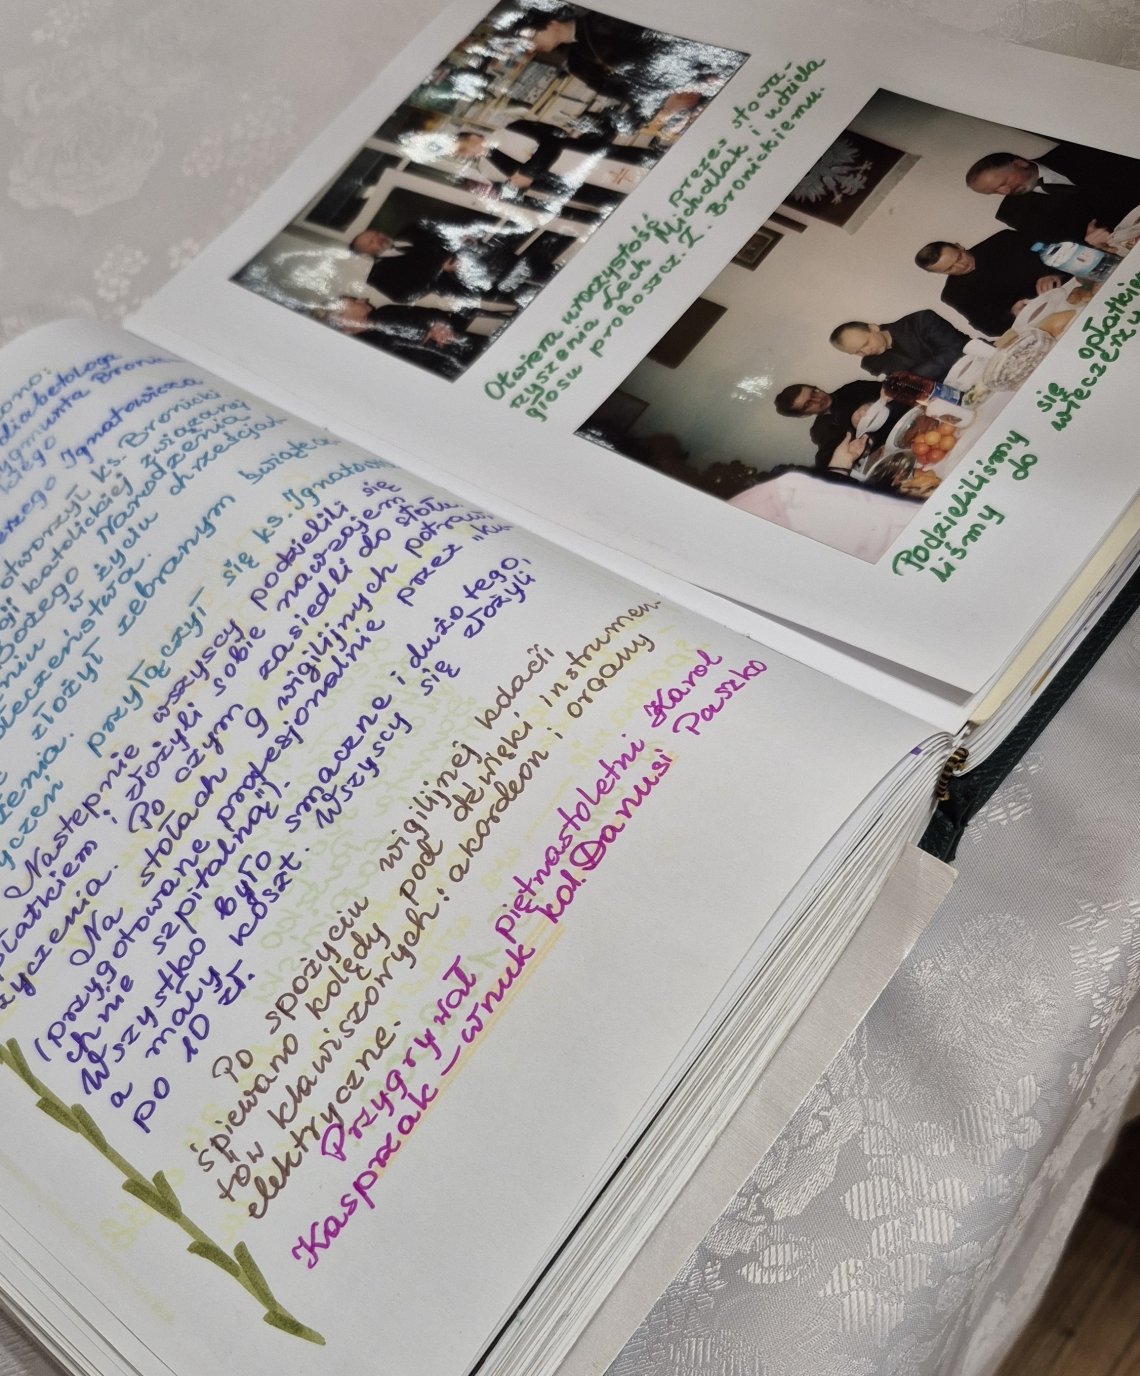 diabetologa
Zygmunta Broni-
kiego
Jerzego Ignatowicza
otworzył ks. Bronicki
katolickiej związanej
Bożego Narodzenia
w życiu chrześcijań
społeczeństwa.
złożył zebranym świątecz
przyłączył się ks. Ignatowicz
Następnie wszyscy podzielili się
opłatkiem i złożyli sobie nawzajem
życzenia. Po czym zasiedli do stołu.
Na stołach 9 wigilijnych potraw
(przygotowane profesjonalnie przez „ku
chnię szpitalną").
Wszystko było smaczne i dużo tego,
a mały koszt. Wszyscy się złożyli
po 10 zł.
Po spożyciu wigilijnej kolacji,
śpiewano kolędy pod dźwięki instrumen-
tów klawiszowych: akordeon i organy
elektryczne.
Przygrywał piętnastoletni Karol
Kasprzak – wnuk kol. Danusi Paszko
Otwiera uroczystość prezes stowa-
rzyszenia Lech Michalak i udziela
głosu proboszcz. Z. Bronickiemu.
Podzieliliśmy się opłatkiem
liśmy do wieczerzy